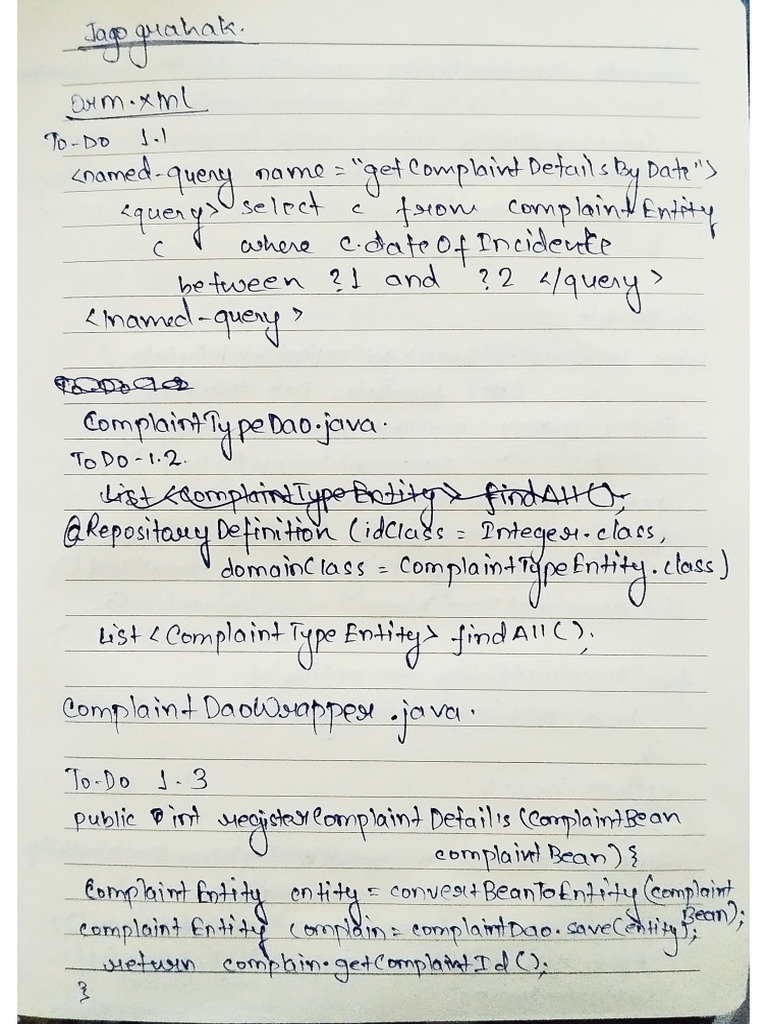 Jago grahak.
orm.xml
To-Do 1.1
<named-query name = "getComplaintDetailsByDate">
<query> select c from complaintEntity
c where c.dateOfIncidente
between ?1 and ?2 </query>
</named-query>
ComplaintTypeDao.java.
ToDo-1.2.
List <ComplaintTypeEntity> findAll();
@RepositaryDefinition (idClass = Integer.class,
domainClass = ComplaintTypeEntity.class)
List <ComplaintTypeEntity> findAll();
ComplaintDaoWrapper.java.
To-Do 1.3
public int registerComplaintDetails (ComplaintBean
complaintBean) {
ComplaintEntity entity = convertBeanToEntity(complaint
Bean);
complaintEntity complain = complaintDao.save(entity);
return complain.getComplaintId();
}